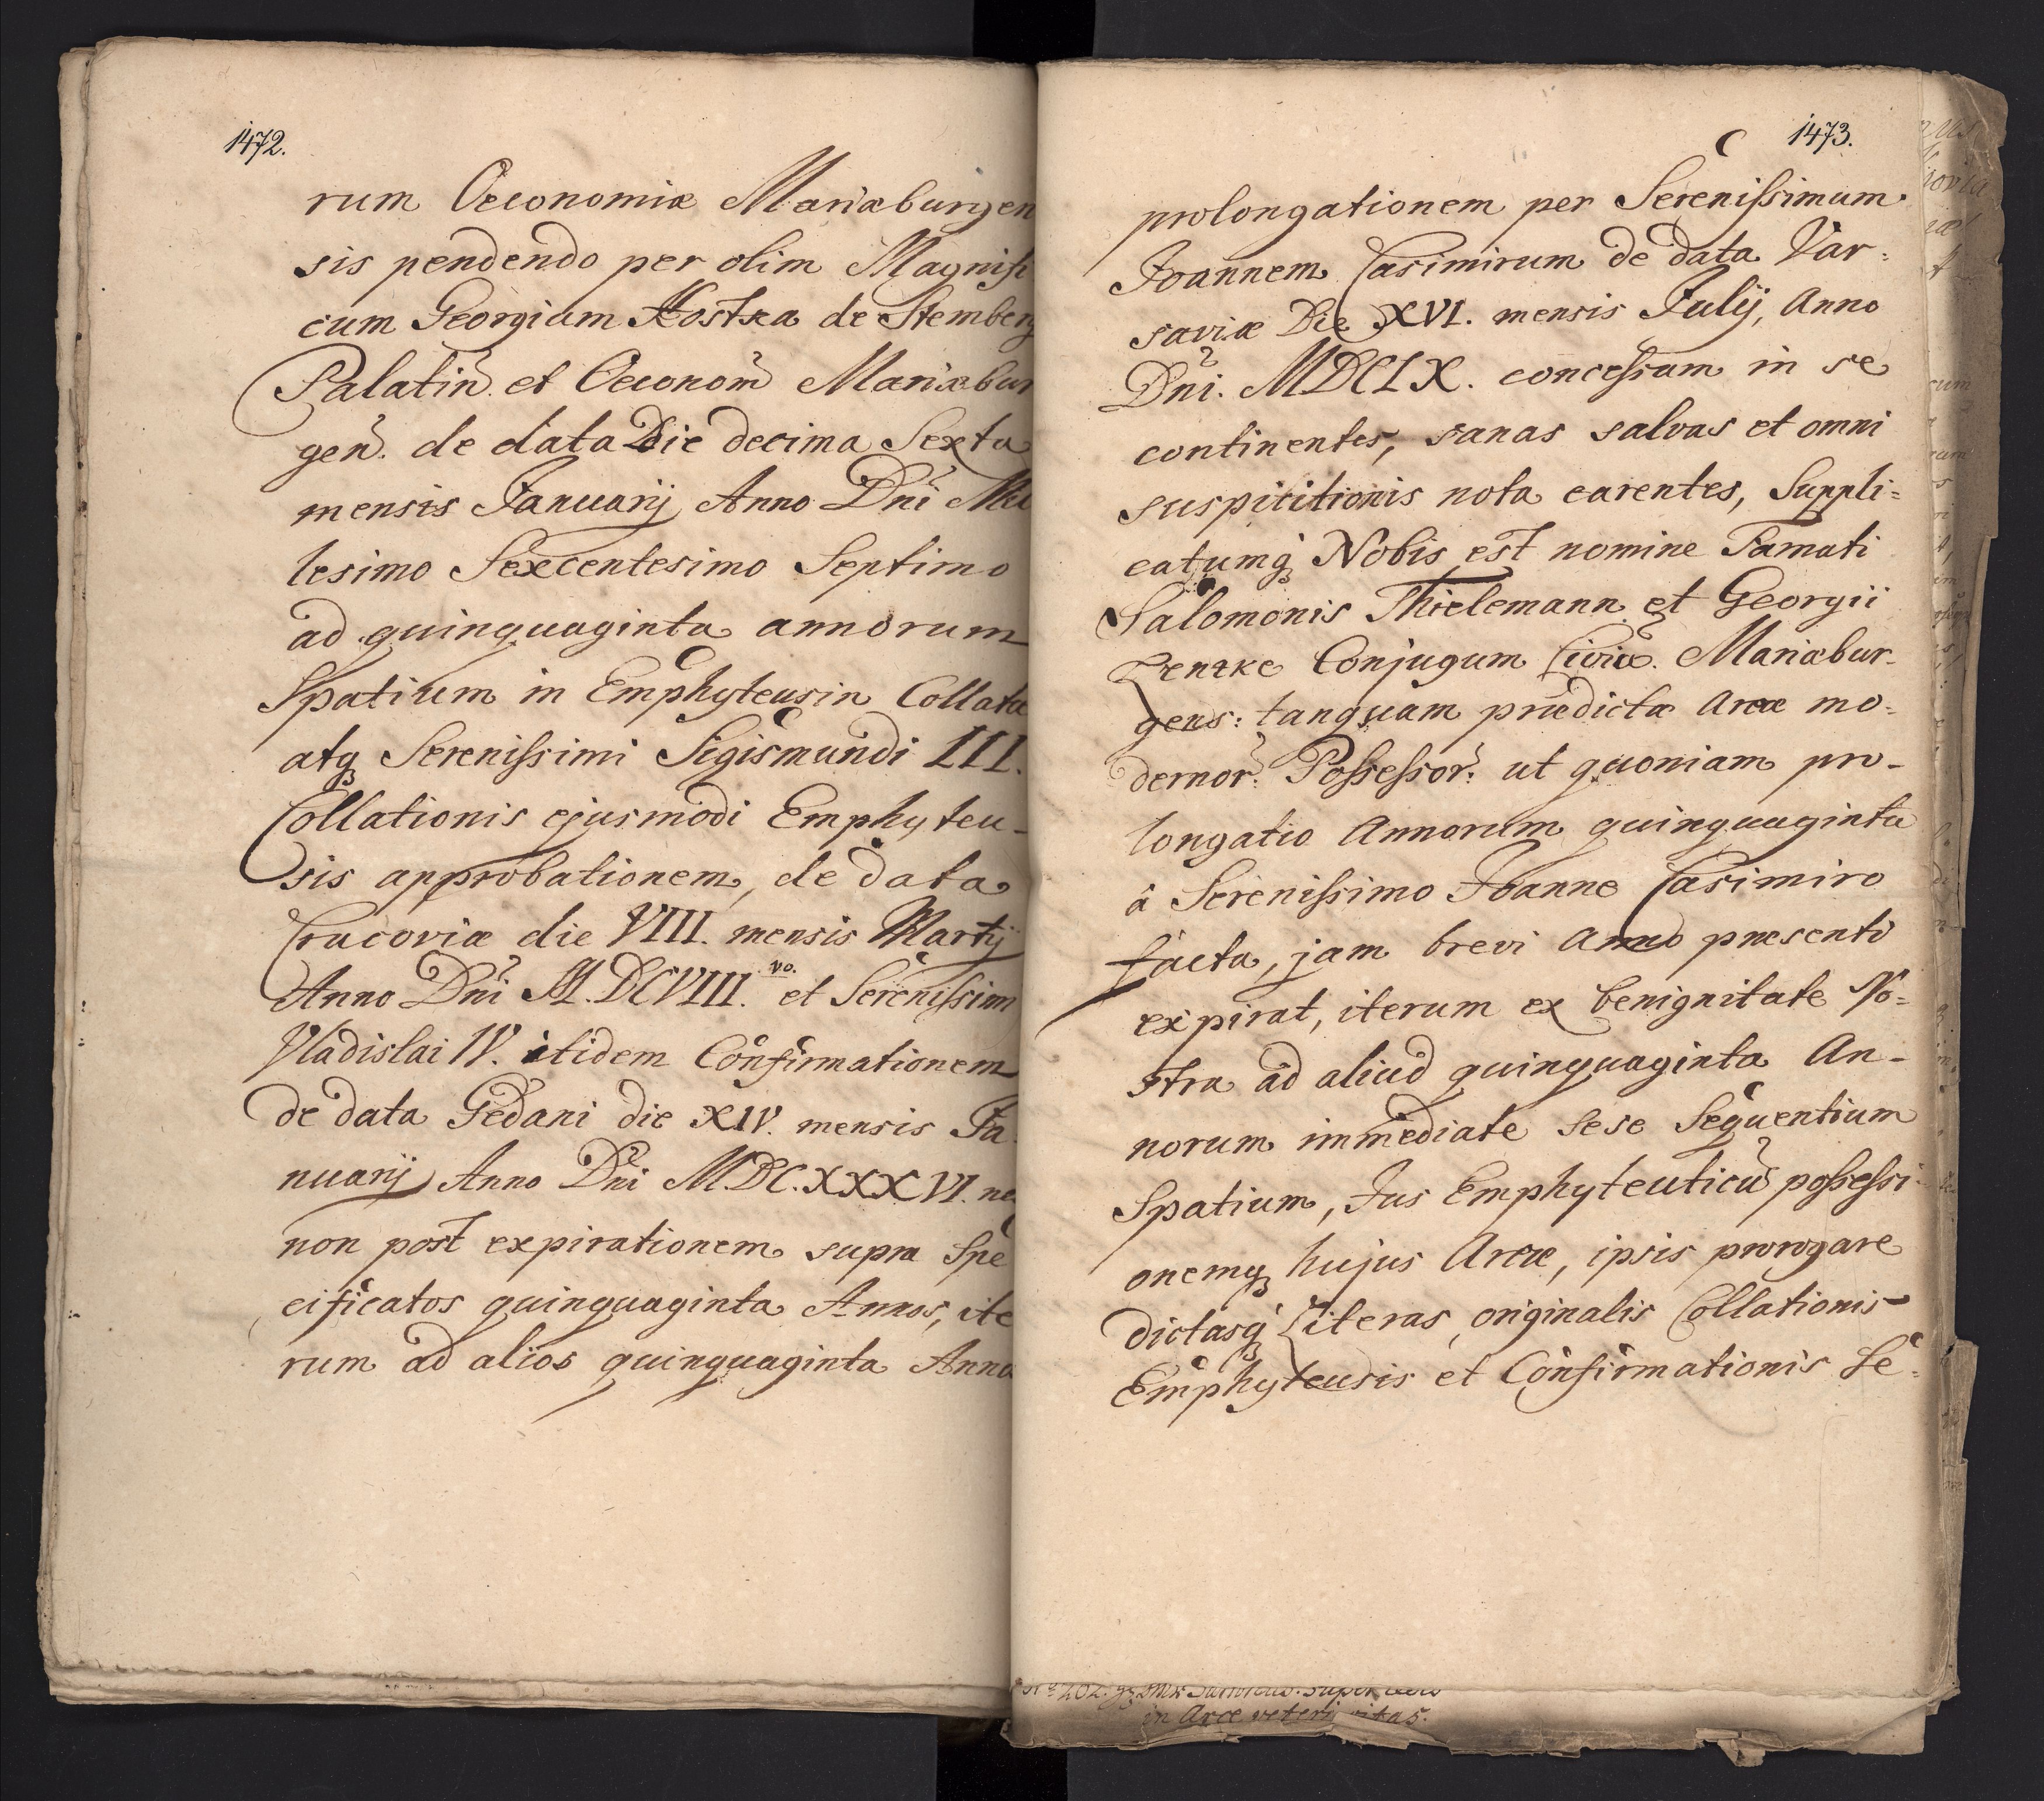 1472.
rum Oeconomiæ Mariæburgen
sis pendendo per olim Magnifi
cum Georgium Kostka de Stemberg
Palatin̄. et Oeconom̄ Mariæbur
gen̄. de data Die decima Sexta
mensis Januarij Anno Dn̄i Mil
lesimo Sexcentesimo Septimo
ad quinquaginta annorum
Spatium in Emphyteusin Collatæ
atq₃ Serenissimi Sigismundi III.
Collationis ejusmodi Emphyteu-
sis approbationem, de data
Cracoviæ die VIII. mensis Martij
Anno Dn̄i M.DCVIII.vo. et Serenissim
Vladislai IV. itidem Confirmationem
de data Gedani die XIV. mensis Ja
nuarij Anno Dn̄i MDC.XXXVI. nec
non post expirationem supra Spe
cificatos quinquaginta Annos, ite
rum ad alios quinquaginta Anno
1473.
prolongationem per Serenissimum
Joannem Casimirum de data Var=
saviæ Die XVI. mensis Julij, Anno
Dn̄i. MDCLX. concessam in se
continentes, sanas salvas et omni
suspicitionis nota carentes, Suppli=
catumq₃ Nobis est nomine Famati
Salomonis Thielemann et Georgii
Zentke Conjugum Civiū. Mariæbur-
gens: tanquam prædictæ Areæ mo=
dernor̄: Possessor̄: ut quoniam pro-
longatio Annorum quinquaginta
â Serenissimo Joanne Casimiro
facta, jam brevi Anno præsenti
expirat, iterum ex benignitate No=
stra ad aliud quinquaginta An-
norum immediate sese Sequentium
Spatium, Jus Emphyteuticū possessi-
onemq₃ hujus Areæ, ipsis prorogare
dictasq₃ Literas originalis Collationis
Emphyteusis et Confirmationis Se=
in Arce veteri sitas.